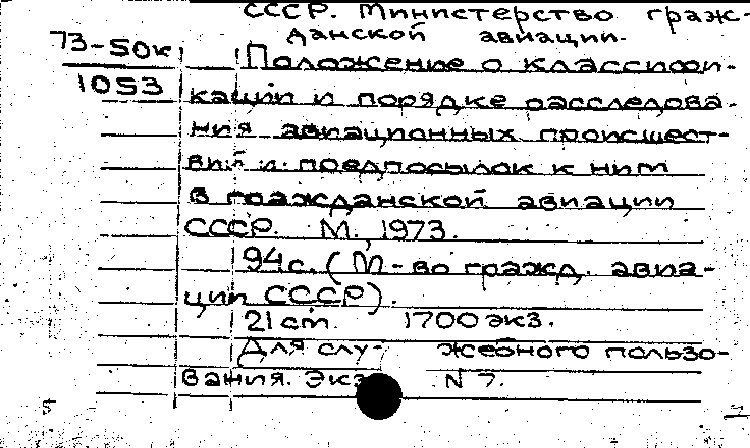 СССР. Министерство граж-
данской авиации.
73-50к
1053
Положение о классифи-
кации и порядке расследова-
ния авиационных происшест-
вий и предпосылок к ним
в гражданской авиации
СССР. М., 1973.
94с. (М-во гражд. авиа-
ции СССР).
21см. 1700экз.
Для слу- жебного пользо-
вания. Экз N 7.